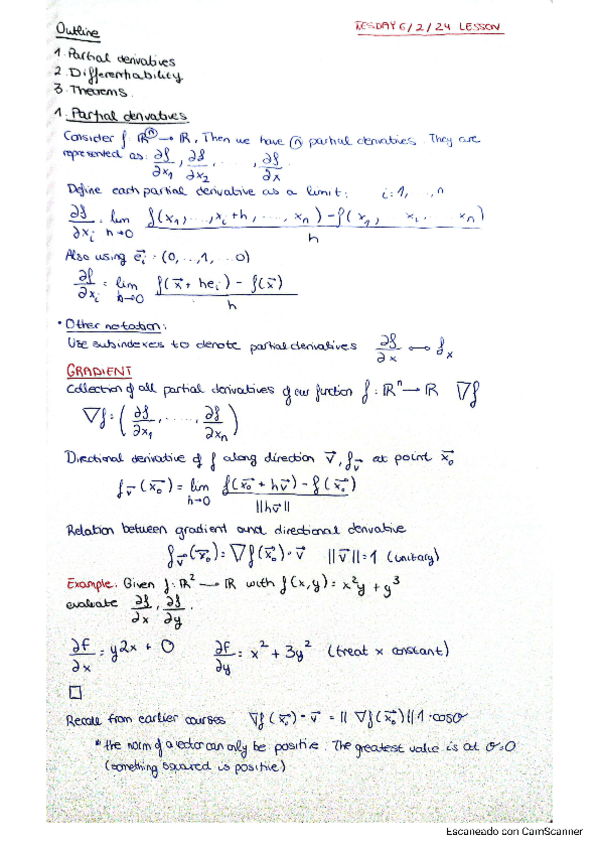 Outline
TESDAY 6/2/24 LESSON
1. Partial derivatives
2. Differentiability
3. Theorems.
1. Partial derivatives
Consider f: ℝⁿ → ℝ, Then we have n partial derivatives. They are
represented as: ∂f/∂x₁, ∂f/∂x₂, ..., ∂f/∂x
Define each partial derivative as a limit: i=1, .., n
∂f/∂xᵢ = lim h→0 (f(x₁, ..., xᵢ+h, ..., xₙ) - f(x₁, ... xᵢ, ... xₙ)) / h
Also using e⃗ᵢ = (0, .., 1, ..0)
∂f/∂xᵢ = lim h→0 (f(x⃗ + heᵢ) - f(x⃗)) / h
• Other notation:
Use subindexes to denote partial derivatives ∂f/∂x ↔ fₓ
GRADIENT
Collection of all partial derivatives of our function f: ℝⁿ → ℝ ∇f
∇f = (∂f/∂x₁, ....., ∂f/∂xₙ)
Directional derivative of f along direction v⃗, f_v⃗ at point x⃗₀
f_v⃗ (x⃗₀) = lim h→0 (f(x⃗₀ + hv⃗) - f(x⃗₀)) / ||hv⃗||
Relation between gradient and directional derivative
f_v⃗ (x⃗₀) = ∇f(x⃗₀) · v⃗ ||v⃗|| = 1 (unitary)
Example. Given f: ℝ² → ℝ with f(x,y) = x²y + y³
evaluate ∂f/∂x, ∂f/∂y.
∂f/∂x = y2x + 0 ∂f/∂y = x² + 3y² (treat x constant)
□
Recall from earlier courses ∇f(x⃗₀) · v⃗ = || ∇f(x⃗₀)|| 1 · cosσ
* the norm of a vector can only be positive. The greatest value is at σ=0
(something squared is positive)
Escaneado con CamScanner